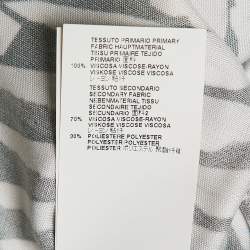 TESSUTO PRIMARIO PRIMARY
FABRIC HAUPTMATERIAL
TISSU PRIMAIRE TEJIDO
PRIMARIO 面料
100% VISCOSA VISCOSE-RAYON
VISKOSE VISCOSE VISCOSA
レーヨン
TESSUTO SECONDARIO
SECONDARY FABRIC
NEBENMATERIAL TISSU
SECONDAIRE TEJIDO
SECUNDARIO 面料2
70% VISCOSA VISCOSE-RAYON
VISKOSE VISCOSE VISCOSA
レーヨン
30% POLIESTERE POLYESTER
POLYESTER POLYESTER
POLIESTER ポリエステル